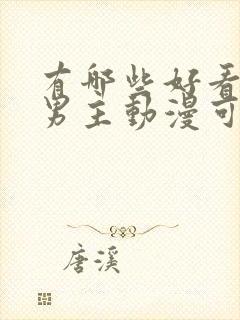 有哪些好看
男主動漫可
唐溪